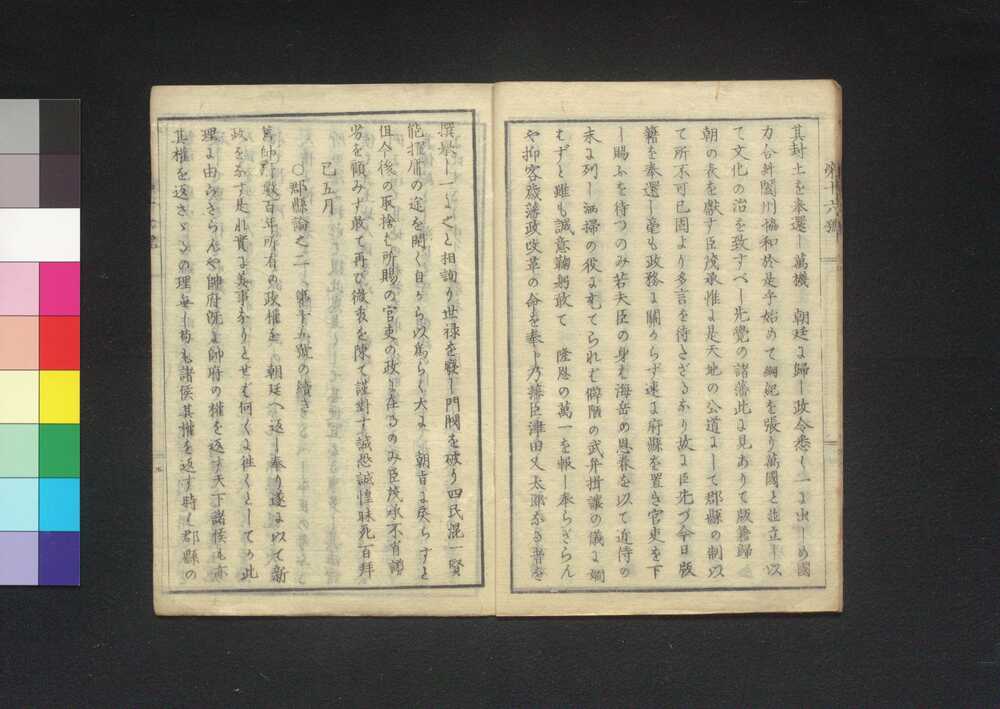 其封土を奉還し萬機 朝廷ゟ歸し政令悉く一ゟ出しめ國
力合幷闔州協和於是乎始めて綱紀を張り萬國と並立し以
て文化の治を致すべし先覺の諸藩此ゟ見ありて版籍歸
朝の表を獻す臣茂承惟ゟ是天地の公道ゟして郡縣の制以
て所不可已固より多言を待たざるあり故ゟ臣先づ今日版
籍を奉還し毫も政務ゟ關からず速ゟ府縣を置き官吏を下
し賜ふを待つのみ若夫臣の身も海岳の恩眷を以て近侍の
末ゟ列し洒掃の役ゟ充てられむ僻陋の武弁揖讓の儀ゟ嫺
むずと雖も誠意鞠躬敢て 隆恩の萬一を報し奉らざらん
や抑客歲藩政改革の命を奉し乃辣臣津田又太郎なる者を
撰擧し一之と相謀り世祿を廢し門閥を破り四民混一賢
能擢庸の途を開く自から以爲らく大ゟ 朝旨ゟ戾らずと
但今後の取捨も所賜の官吏の政ゟ在るのみ臣茂承不肖謭
劣を顧みず敢て再び微衷を陳て謹對す誠恐誠惶昧死百拜
己五月
○郡縣論之二 第十五號の續き
舊帥府數百年所有の政權を 朝廷へ返し奉り遂ゟ以て新
政を爲す是れ實ゟ美事なりとせむ何くゟ往くとしての此
理ゟ由らざらんや帥府既ゟ帥府の權を返す天下諸侯も亦
其權を返さゞるの理無し苟も諸侯其權を返す時ハ郡縣の
第十六號